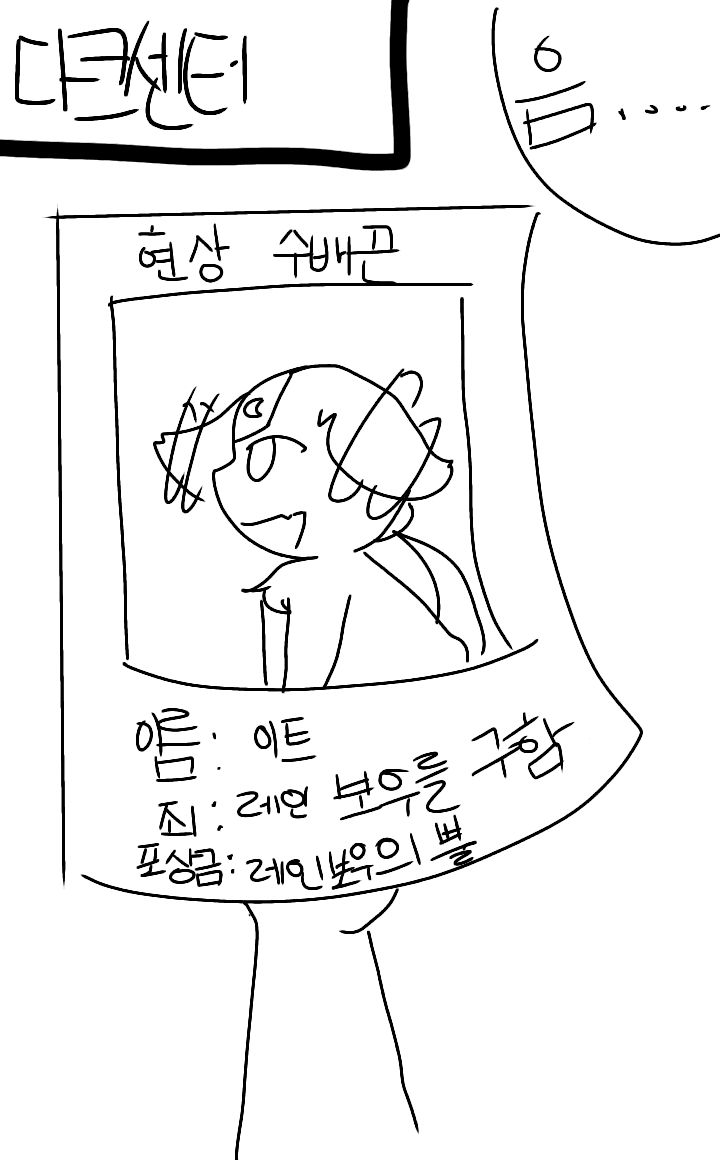 다크센터
음.....
현상 수배끈
이름: 이트
죄: 레인 보우를 구함
포상금: 레인보우의 뿔